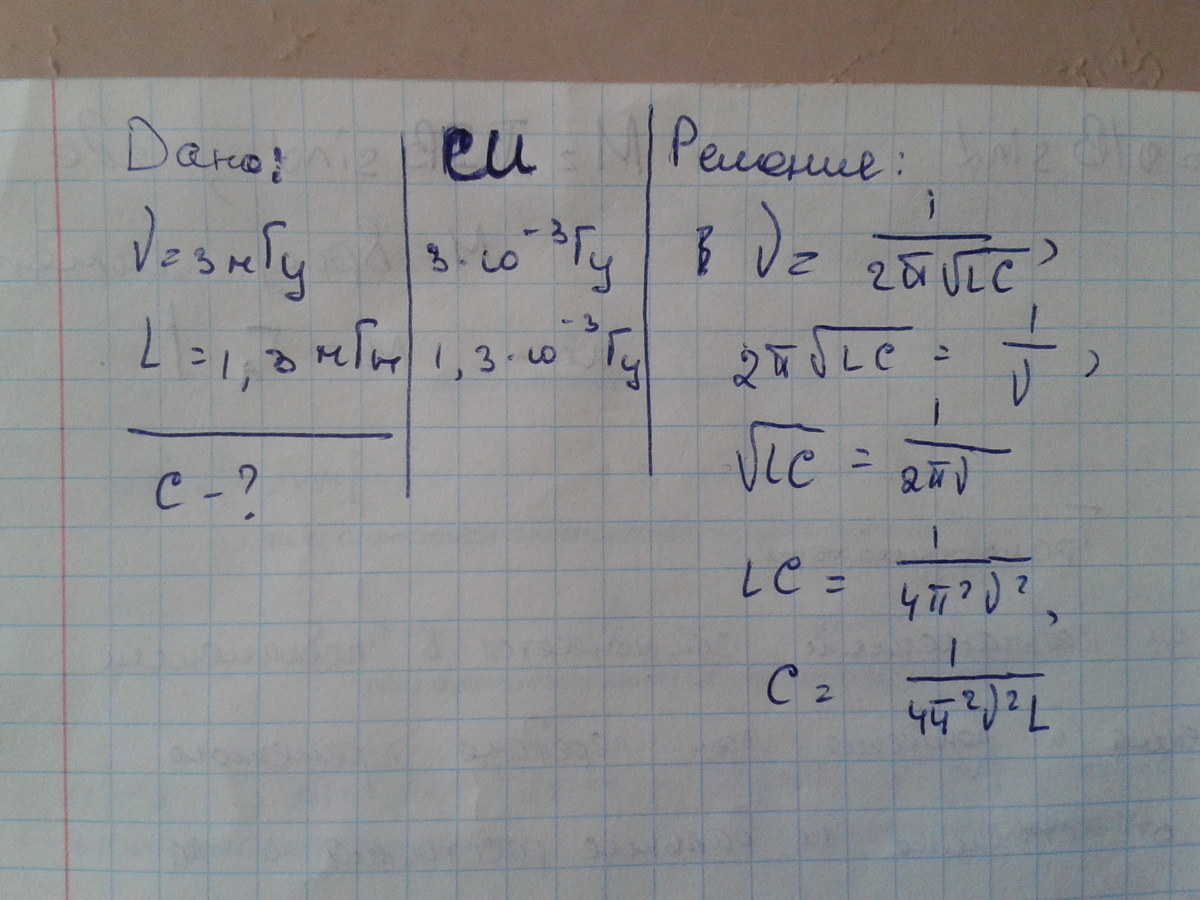 Дано:
ν = 3 мГц
L = 1,3 мГн
C - ?
СИ
3·10⁻³ Гц
1,3·10⁻³ Гц
Решение:
ν = 1/(2π√LC),
2π√LC = 1/ν,
√LC = 1/(2πν)
LC = 1/(4π²ν²),
C = 1/(4π²ν²L)